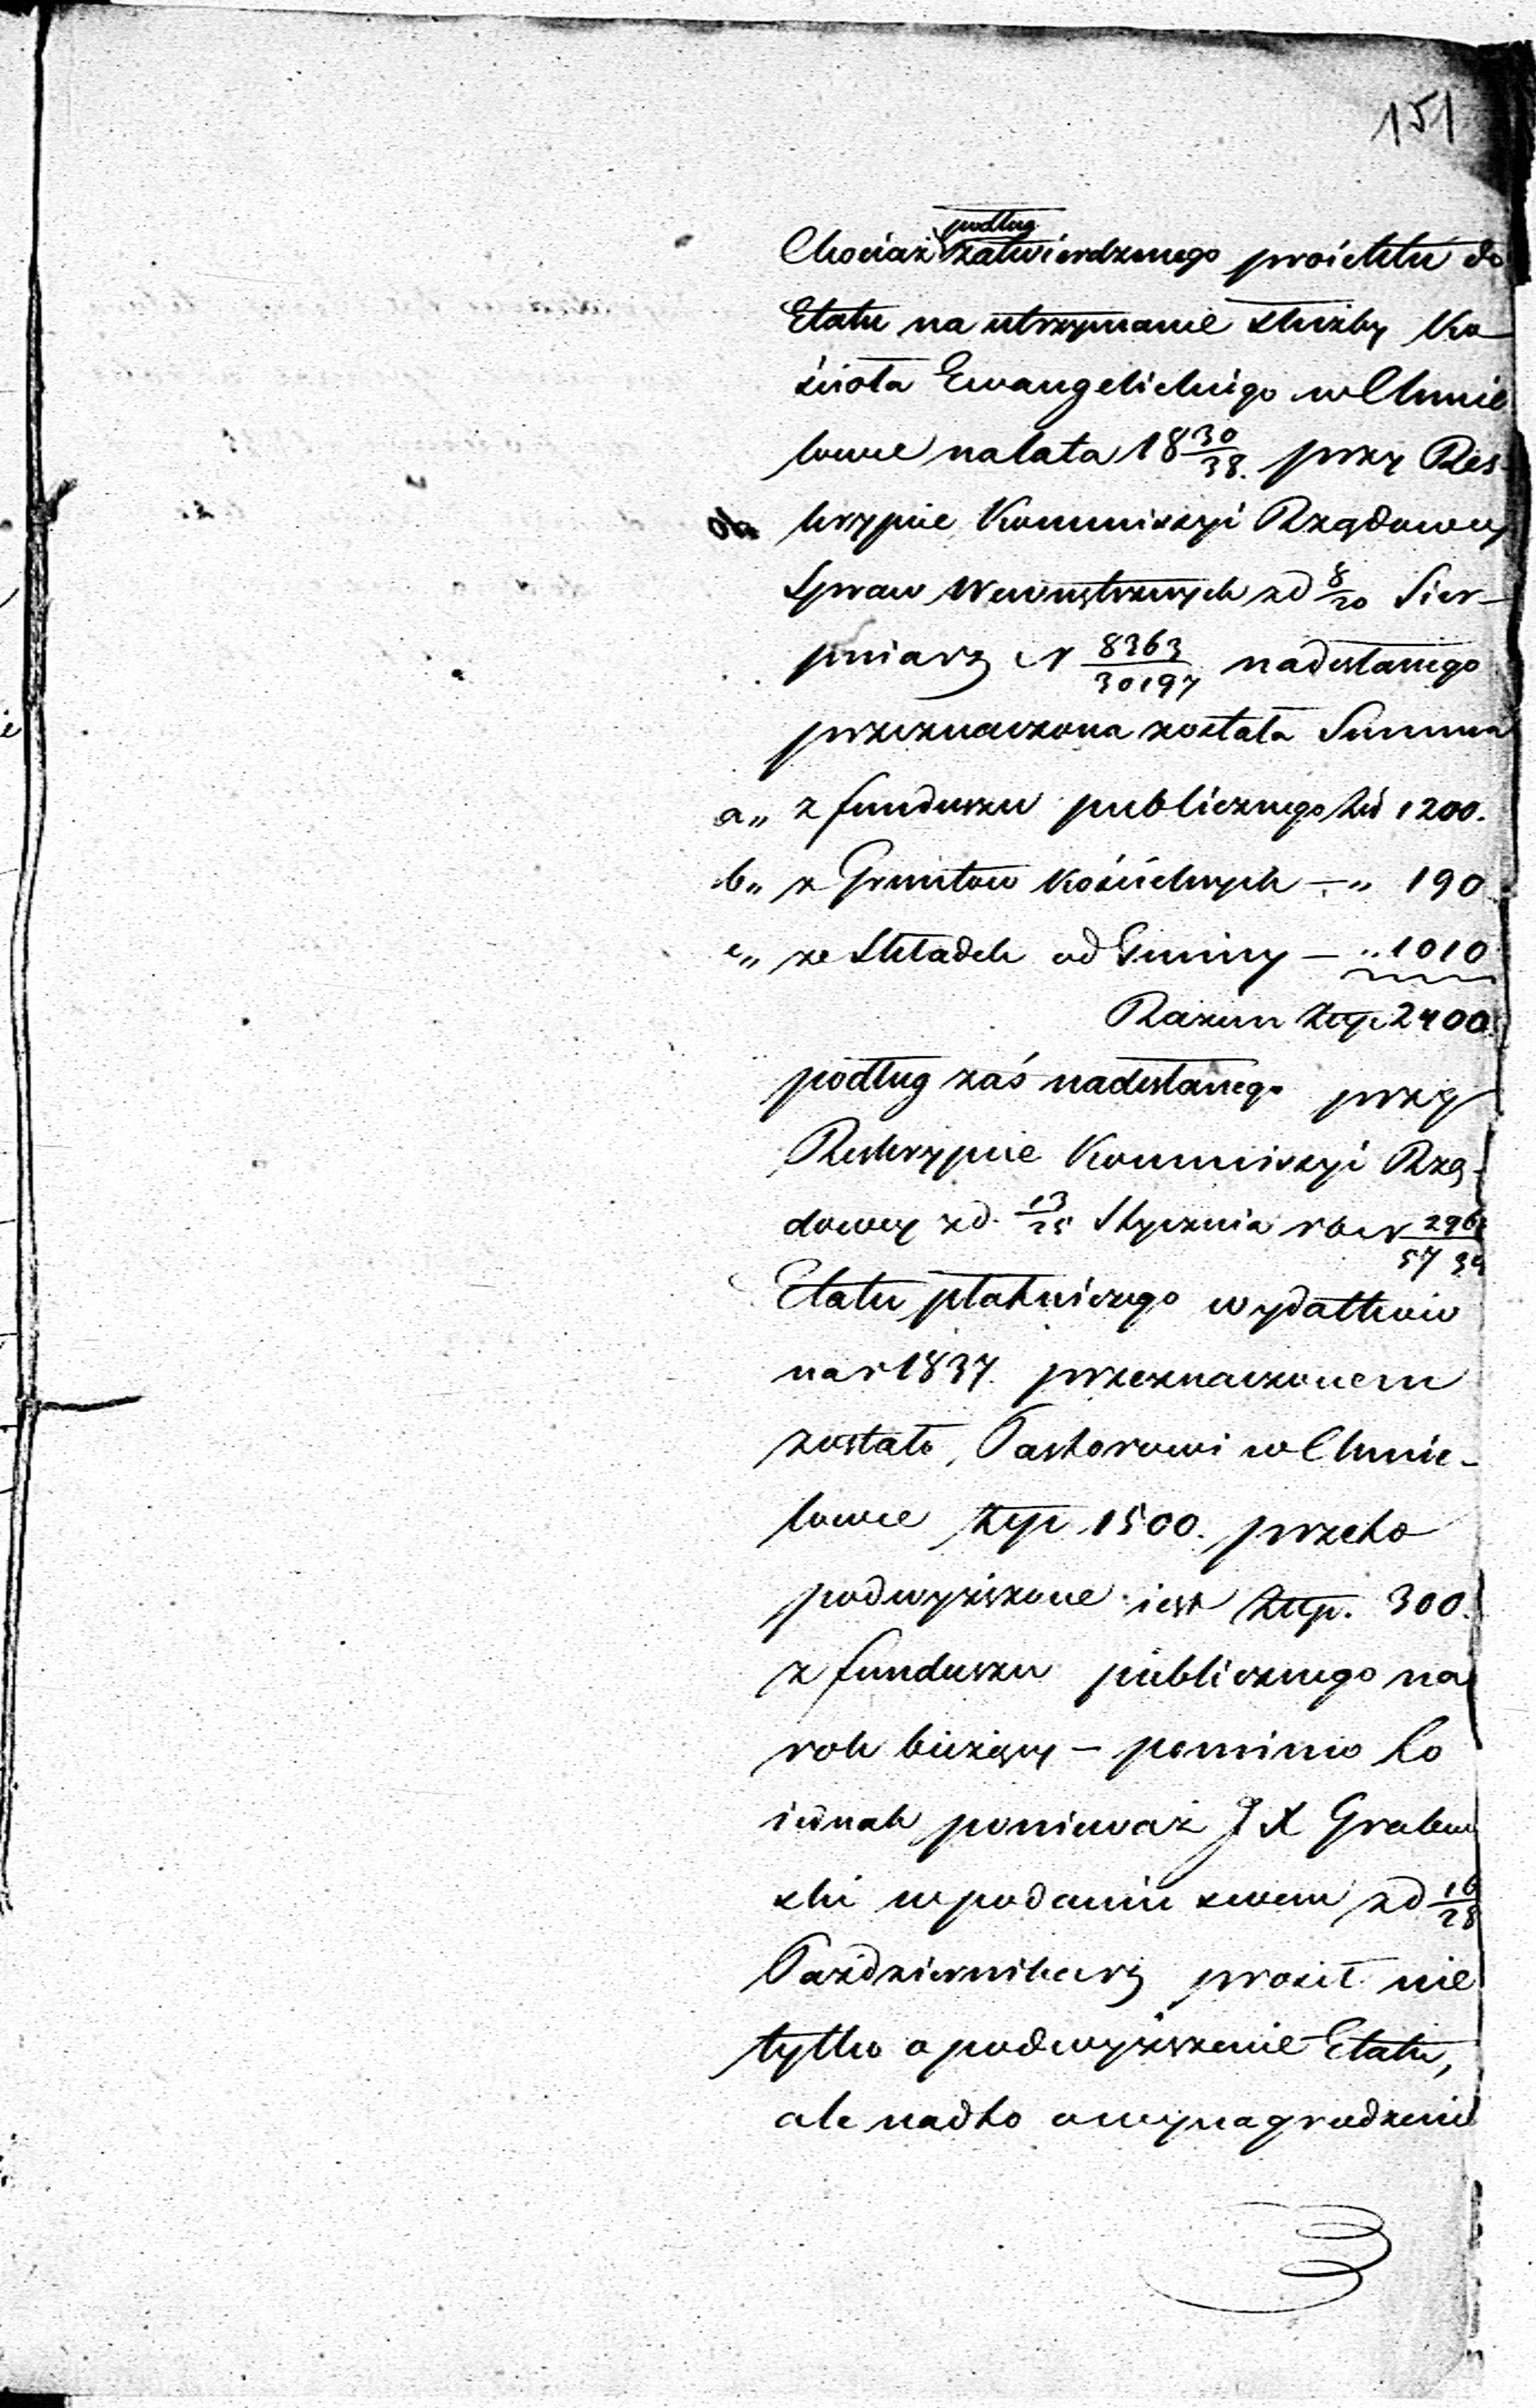 151
podług
Chociaż zatwierdzonego proiektu do
Etatu na utrzymanie służby Ko
ścioła Ewangelickiego w Chmie
lowie na lata 18 30/38. przy Res-
krypcie Kommissyi Rządowey
Spraw Wewnętrznych z d 8/20 Sier-
pnia r z N 8363/30197 nadesłanego
przeznaczona została Summa
a„ z funduszu publicznego Złp 1200.
b„ z Gruntów Kościelnych — „ 190
c„ ze Składek od Gminy — „ 1010
Razem Złp 2400
podług zaś nadesłanego przy
Reskrypcie Kommissyi Rzą-
dowey z d. 13/25 Stycznia r b N 296/5734
Etatu płatniczego wydatków
na r 1837. przeznaczonem
zostało, Pastorowi w Chmie-
lowie Złp 1500. przeto
podwyższone iest Złp. 300.
z funduszu publicznego na
rok bieżący — pomimo to
iednak ponieważ J X Grabow
ski w podaniu swem z d 16/28
Października r z prosił nie
tylko o podwyższenie Etatu,
ale nadto o wynagrodzenie